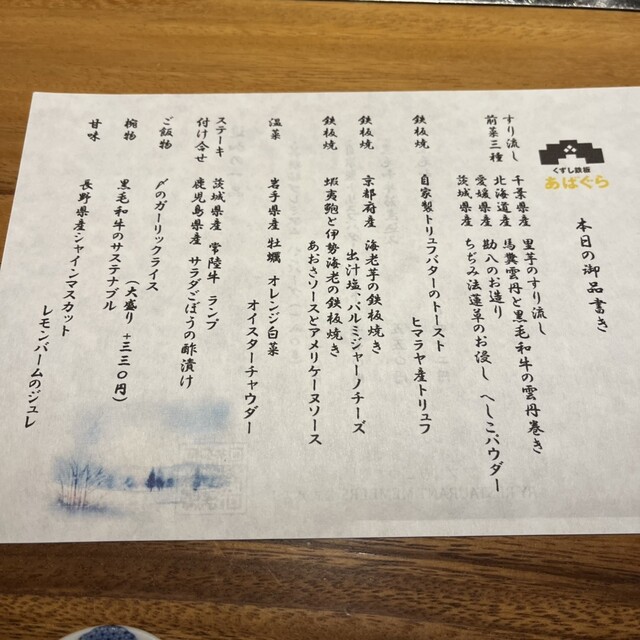 くずし鉄板
あばぐら
本日の御品書き
すり流し 千葉県産 里芋のすり流し
前菜三種 北海道産 馬糞雲丹と黒毛和牛の雲丹巻き
愛媛県産 勘八のお造り
茨城県産 ちぢみ法蓮草のお浸し へしこパウダー
鉄板焼 自家製トリュフバターのトースト
ヒマラヤ産トリュフ
鉄板焼 京都府産 海老芋の鉄板焼き
出汁塩、パルミジャーノチーズ
鉄板焼 蝦夷鮑と伊勢海老の鉄板焼き
あおさソースとアメリケーヌソース
温菜 岩手県産 牡蠣 オレンジ白菜
オイスターチャウダー
ステーキ 茨城県産 常陸牛 ランプ
付け合せ 鹿児島県産 サラダごぼうの酢漬け
ご飯物 〆のガーリックライス
(大盛り +三三0円)
椀物 黒毛和牛のサステナブル
甘味 長野県産シャインマスカット
レモンバームのジュレ